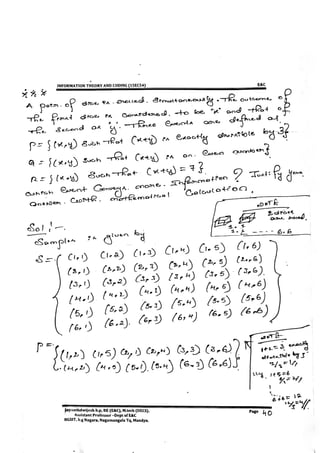 INFORMATION THEORY AND CODING (15EC54) E&C
A pair of dice are rolled simultaneously. The outcome of
the first dice is considered to be "x" and that of
the second as y. Three events are defined as
P = {(x,y) such that (x+y) is exactly divisible by 3}
Q = {(x,y) such that (x+y) is an even number}
R = {(x,y) such that (x+y) = 7}.
Which event conveys more information? Justify your
answer with mathematical calculation.
Sol :-
NOTE
Sample is given by
6.6
S = (1,1) (1,2) (1,3) (1,4) (1,5) (1,6)
(2,1) (2,2) (2,3) (2,4) (2,5) (2,6)
(3,1) (3,2) (3,3) (3,4) (3,5) (3,6)
(4,1) (4,2) (4,3) (4,4) (4,5) (4,6)
(5,1) (5,2) (5,3) (5,4) (5,5) (5,6)
(6,1) (6,2) (6,3) (6,4) (6,5) (6,6)
NOTE
P = {(1,2) (1,5) (2,1) (2,4) (3,3) (3,6)
(4,2) (4,5) (5,1) (5,4) (6,3) (6,6)}
1+2=3 exactly
divisible by 3
3/3=1
1+5=6
6+6=12
Jayanthdwijesh H P, BE (E&C), M.tech (DECS),
Assistant Professor - Dept of E&C
BGSIT, B.G Nagara, Nagamangala Tq, Mandya.
Page 40